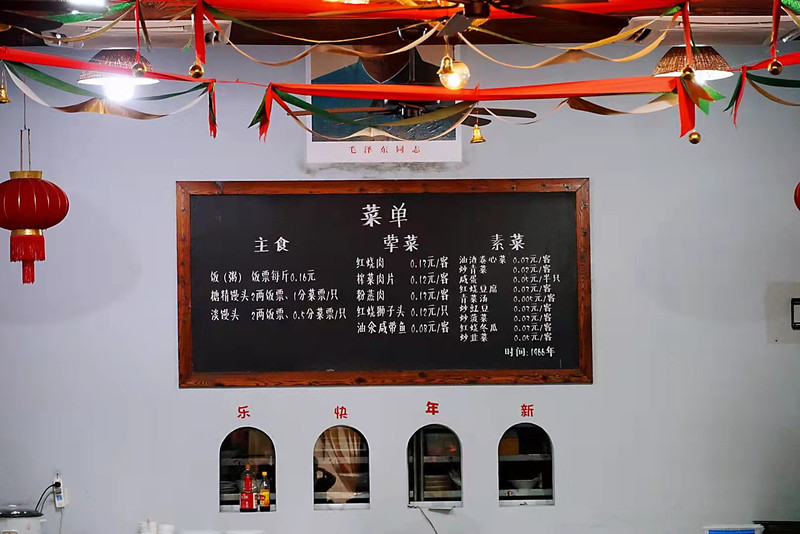 毛泽东同志
菜单
主食
饭（粥） 饭票每斤0.16元
糖精馒头2两饭票、1分菜票/只
淡馒头 2两饭票、0.5分菜票/只
荤菜
红烧肉 0.17元/客
榨菜肉片 0.12元/客
粉蒸肉 0.17元/客
红烧狮子头 0.12元/只
油汆咸带鱼 0.08元/客
素菜
油渍卷心菜 0.07元/客
炒青菜 0.02元/客
咸蛋 0.05元/半只
红烧豆腐 0.07元/客
青菜汤 0.005元/客
炒豇豆 0.07元/客
炒菠菜 0.07元/客
红烧冬瓜 0.07元/客
炒韭菜 0.05元/客
时间：1966年
乐 快 年 新